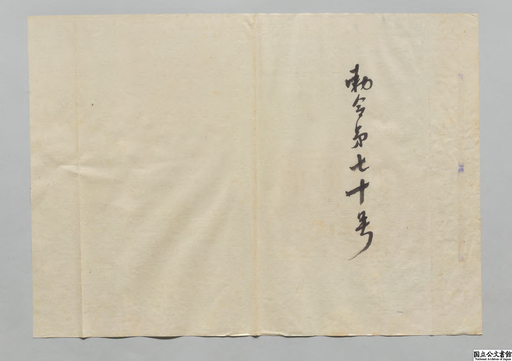 勅令第七十号
国立公文書館
National Archives of Japan